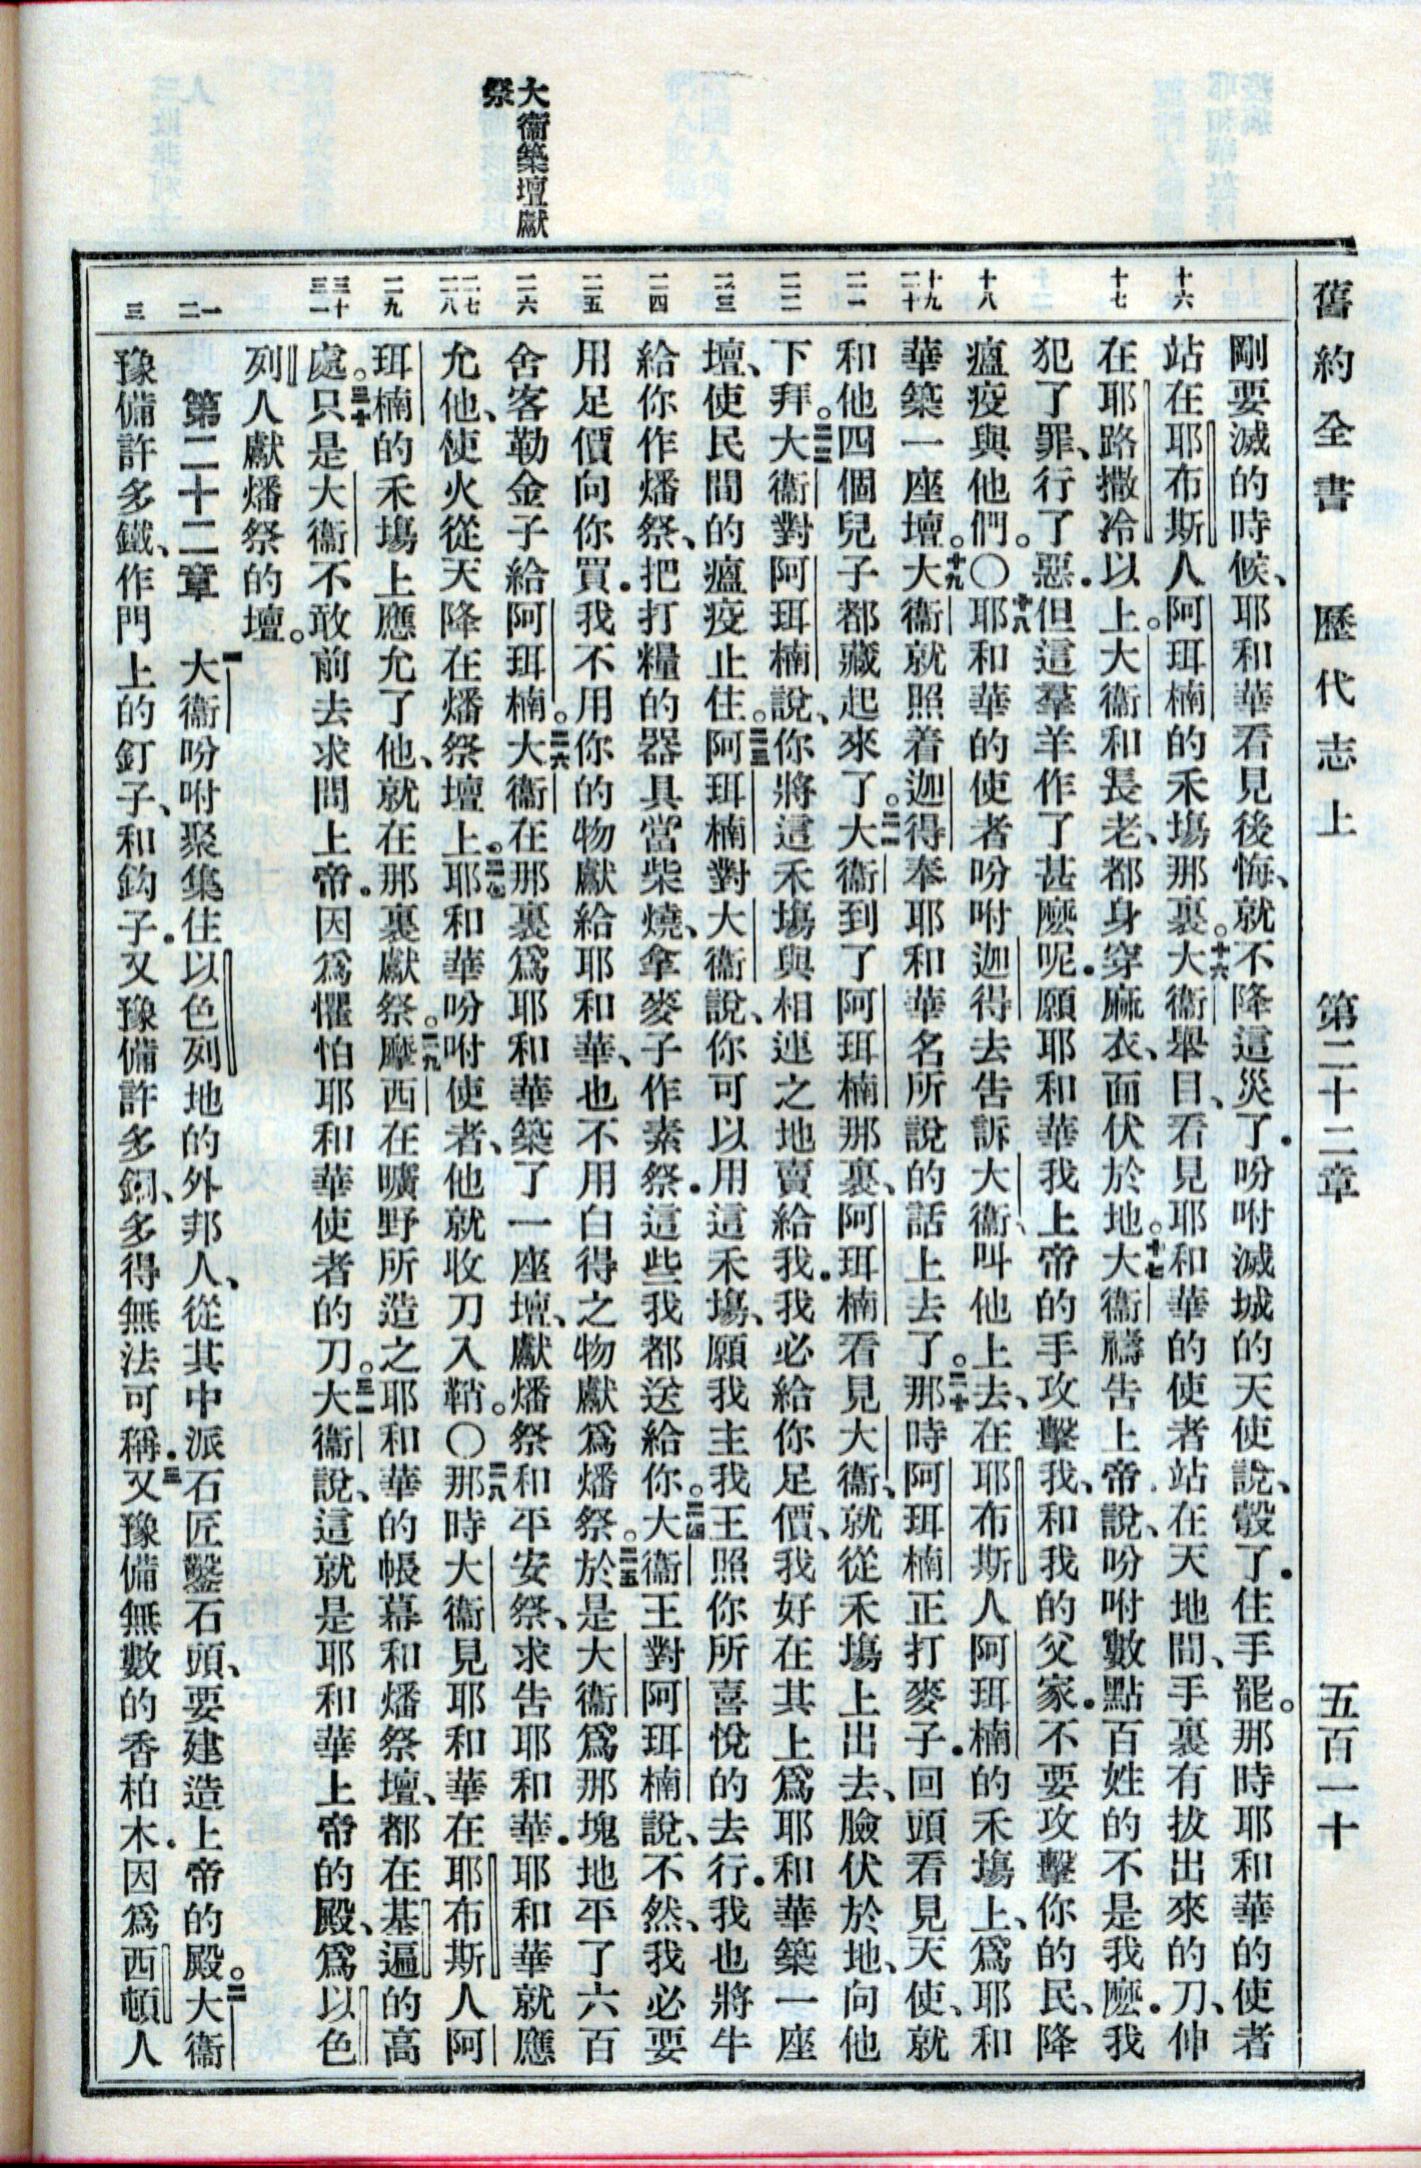 舊約全書　歷代志上　第二十二章　五百一十
大衞築壇獻
祭
十六
十七
十八
十九
二十
二一
二二
二三
二四
二五
二六
二七
二八
二九
三十
三一
一
二
三
剛要滅的時候、耶和華看見後悔、就不降這災了．吩咐滅城的天使說、彀了．住手罷。那時耶和華的使者
站在耶布斯人阿珥楠的禾塲那裏。十六大衞舉目、看見耶和華的使者站在天地間、手裏有拔出來的刀、伸
在耶路撒冷以上。大衞和長老、都身穿麻衣、面伏於地。十七大衞禱告上帝說、吩咐數點百姓的不是我麽．我
犯了罪、行了惡．但這羣羊作了甚麽呢．願耶和華我上帝的手攻擊我、和我的父家．不要攻擊你的民、降
瘟疫與他們。〇十八耶和華的使者吩咐迦得去告訴大衞、叫他上去、在耶布斯人阿珥楠的禾塲上、爲耶和
華築一座壇。十九大衞就照着迦得奉耶和華名所說的話上去了。二十那時阿珥楠正打麥子．回頭看見天使、就
和他四個兒子都藏起來了。二一大衞到了阿珥楠那裏、阿珥楠看見大衞、就從禾塲上出去、臉伏於地、向他
下拜。二二大衞對阿珥楠說、你將這禾塲與相連之地賣給我．我必給你足價、我好在其上爲耶和華築一座
壇、使民間的瘟疫止住。二三阿珥楠對大衞說、你可以用這禾塲、願我主我王照你所喜悅的去行．我也將牛
給你作燔祭、把打糧的器具當柴燒、拿麥子作素祭．這些我都送給你。二四大衞王對阿珥楠說、不然、我必要
用足價向你買．我不用你的物獻給耶和華、也不用白得之物獻爲燔祭。二五於是大衞爲那塊地平了六百
舍客勒金子給阿珥楠。二六大衞在那裏爲耶和華築了一座壇、獻燔祭和平安祭、求告耶和華．耶和華就應
允他、使火從天降在燔祭壇上。二七耶和華吩咐使者、他就收刀入鞘。〇二八那時大衞見耶和華在耶布斯人阿
珥楠的禾塲上應允了他、就在那裏獻祭。二九摩西在曠野所造之耶和華的帳幕和燔祭壇、都在基遍的高
處。三十只是大衞不敢前去求問上帝．因爲懼怕耶和華使者的刀。三一大衞說、這就是耶和華上帝的殿、爲以色
列人獻燔祭的壇。
第二十二章　一大衞吩咐聚集住以色列地的外邦人、從其中派石匠鑿石頭、要建造上帝的殿。二大衞
豫備許多鐵、作門上的釘子、和鈎子．又豫備許多銅、多得無法可稱．三又豫備無數的香柏木．因爲西頓人